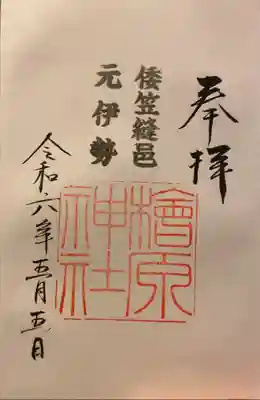 奉拝
倭笠縫邑
元伊勢
檜原神社
令和六年五月五日